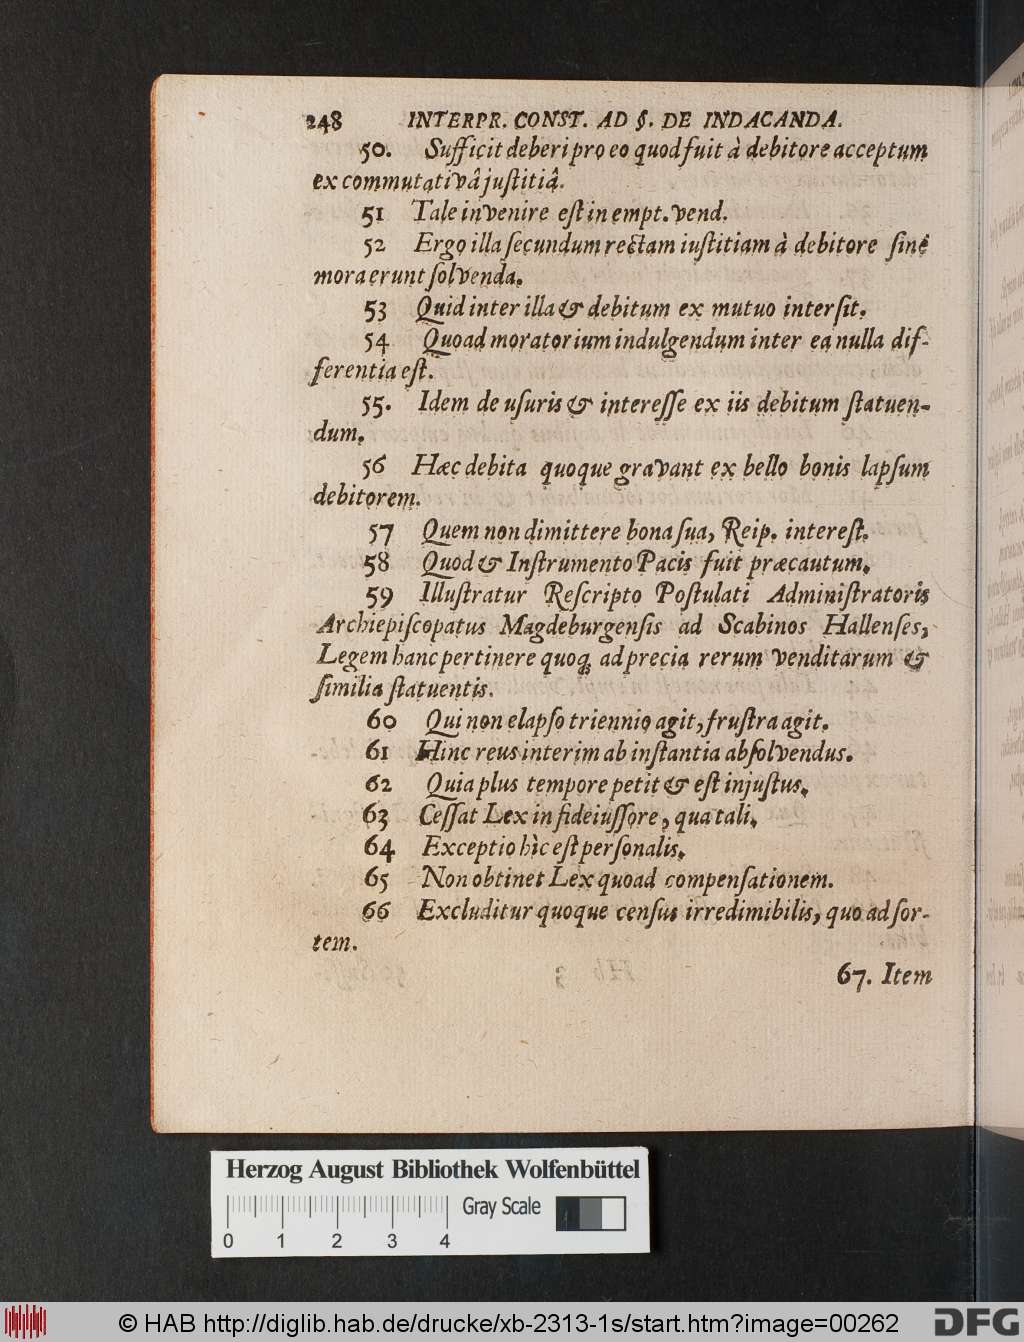 248 INTERPR. CONST. AD §. DE INDACANDA.
50. Sufficit deberi pro eo quod fuit à debitore acceptum
ex commutativâ justitiâ.
51 Tale invenire est in empt. vend.
52 Ergo illa secundum rectam iustitiam à debitore sine
mora erunt solvenda.
53 Quid inter illa & debitum ex mutuo intersit.
54 Quoad moratorium indulgendum inter ea nulla dif-
ferentia est.
55. Idem de usuris & interesse ex iis debitum statuen-
dum.
56 Hæc debita quoque gravant ex bello bonis lapsum
debitorem.
57 Quem non dimittere bona sua, Reip. interest.
58 Quod & Instrumento Pacis fuit præcautum.
59 Illustratur Rescripto Postulati Administratoris
Archiepiscopatus Magdeburgensis ad Scabinos Hallenses,
Legem hanc pertinere quoq; ad precia rerum venditarum &
similia statuentis.
60 Qui non elapso triennio agit, frustra agit.
61 Hinc reus interim ab instantia absolvendus.
62 Quia plus tempore petit & est injustus.
63 Cessat Lex in fideiussore, qua tali.
64 Exceptio hìc est personalis.
65 Non obtinet Lex quoad compensationem.
66 Excluditur quoque census irredimibilis, quo ad sor-
tem.
67. Item
Herzog August Bibliothek Wolfenbüttel
Gray Scale
0 1 2 3 4
© HAB http://diglib.hab.de/drucke/xb-2313-1s/start.htm?image=00262
DFG